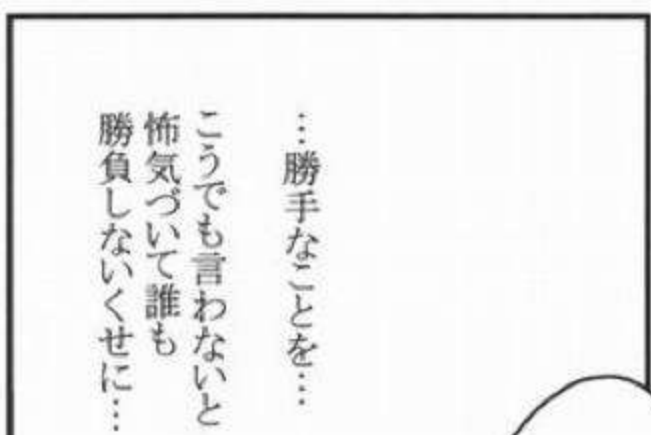 …勝手なことを…
こうでも言わないと
怖気づいて誰も
勝負しないくせに…